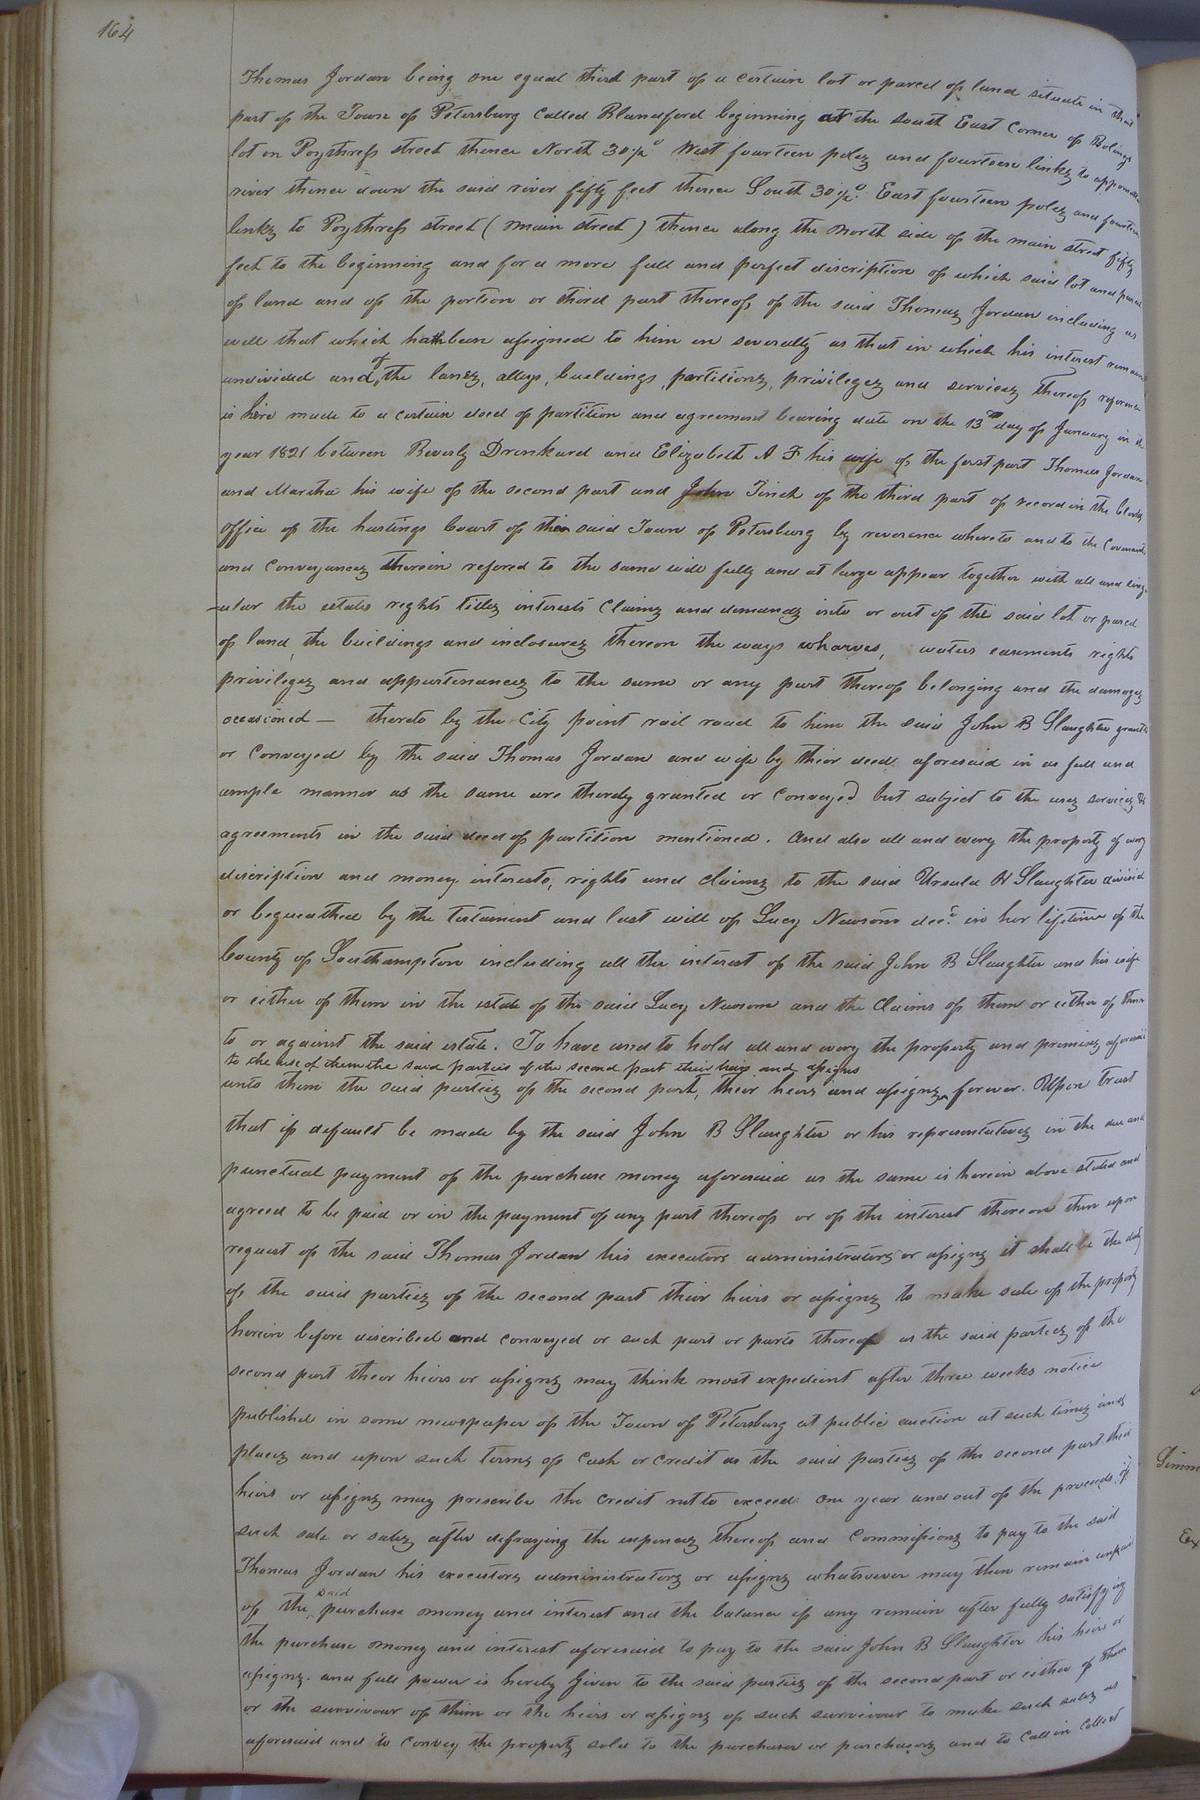 164
Thomas Jordan being one equal third part of a certain lot or parcel of land situate in that
part of the Town of Petersburg Called Blandford beginning at the south East Corner of Bolings
lot on Poythress street thence North 30½° West fourteen polez and fourteen linkz to appomattox
river thence down the said river fifty feet thence South 30½° East fourteen polez and fourteen
linkz to Poythress street (main street) thence along the North side of the main street fifty
feet to the beginning and for a more full and perfect discription of which said lot and parcel
of land and of the portion or third part thereof, of the said Thomas Jordan including as
well that which hath been assigned to him in severalty as that in which his interest remains
undivided and of the lanez, alleys, buildings, partitionz, privilegez and servicez thereof referrence
is here made to a certain deed of partition and agreement bearing date on the 13th day of January in the
year 1821 between Beverly Drinkard and Elizabeth A F his wife of the first part Thomas Jordan
and Martha his wife of the second part and John Finch of the third part of record in the Clerks
office of the hustings Court of the said Town of Petersburg by reverence whereto and to the Covenants
and Conveyancez therein refered to the same will fully and at large appear together with all and sing-
-ular the estates rights titlez interests Claimz and demandz into or out of the said lot or parcel
of land, the buildings and inclosurez thereon the ways wharves, waters easments rights
privilegez and appurtenancez to the same or any part thereof belonging and the damagez
occasioned — thereto by the City point rail road to him the said John B Slaughter granted
or Conveyed by the said Thomas Jordan and wife by their deed aforesaid in as full and
ample manner as the same are thereby granted or Conveyed but subject to the usez servicez &
agreements in the said deed of partition mentioned. And also all and every the property of every
discription and money interests, rights and claimz to the said Ursula H Slaughter divised
or bequeathed by the testament and last will of Lucy Newsom decd. in her lifetime of the
County of Southampton including all the interest of the said John B Slaughter and his wife
or either of them in the estate of the said Lucy Newsom and the Claims of them or either of them
to or against the said estate. To have and to hold all and every the property and premisez aforesaid
to the use of them the said parties of the second part their heirs and assigns
unto them the said partiez of the second part, their heirs and assignz forever. Upon trust
that if default be made by the said John B Slaughter or his representativez in the due and
punctual payment of the purchase money aforesaid as the same is herein above stated and
agreed to be paid or in the payment of any part thereof or of the interest thereon then upon
request of the said Thomas Jordan his executors administratorz or assignz it shall be the duty
of the said partiez of the second part their heirs or assignz to make sale of the property
herein before discribed and conveyed or such part or parts thereof as the said partiez of the
second part their heirs or assignz may think most expedient after three weeks notice
published in some newspaper of the Town of Petersburg at public auction at such timez and
placez and upon such termz of Cash or Credit as the said partiez of the second part their
heirs or assignz may prescribe the Credit not to exceed one year and out of the proceeds of
such sale or salez after defraying the expencez thereof and Commissionz to pay to the said
Thomas Jordan his executorz administratorz or assignz whatsoever may then remain unpaid
of the said purchase money and interest and the balance if any remain after fully satisfying
the purchase money and interest aforesaid to pay to the said John B Slaughter his heirs or
assignz. and full power is hereby Given to the said partiez of the second part or either of them
or the survivour of them or the heirs or assignz of such survivour to make such salez as
aforesaid and to Convey the property sold to the purchaser or purchaserz and to Call in Collect
Ex